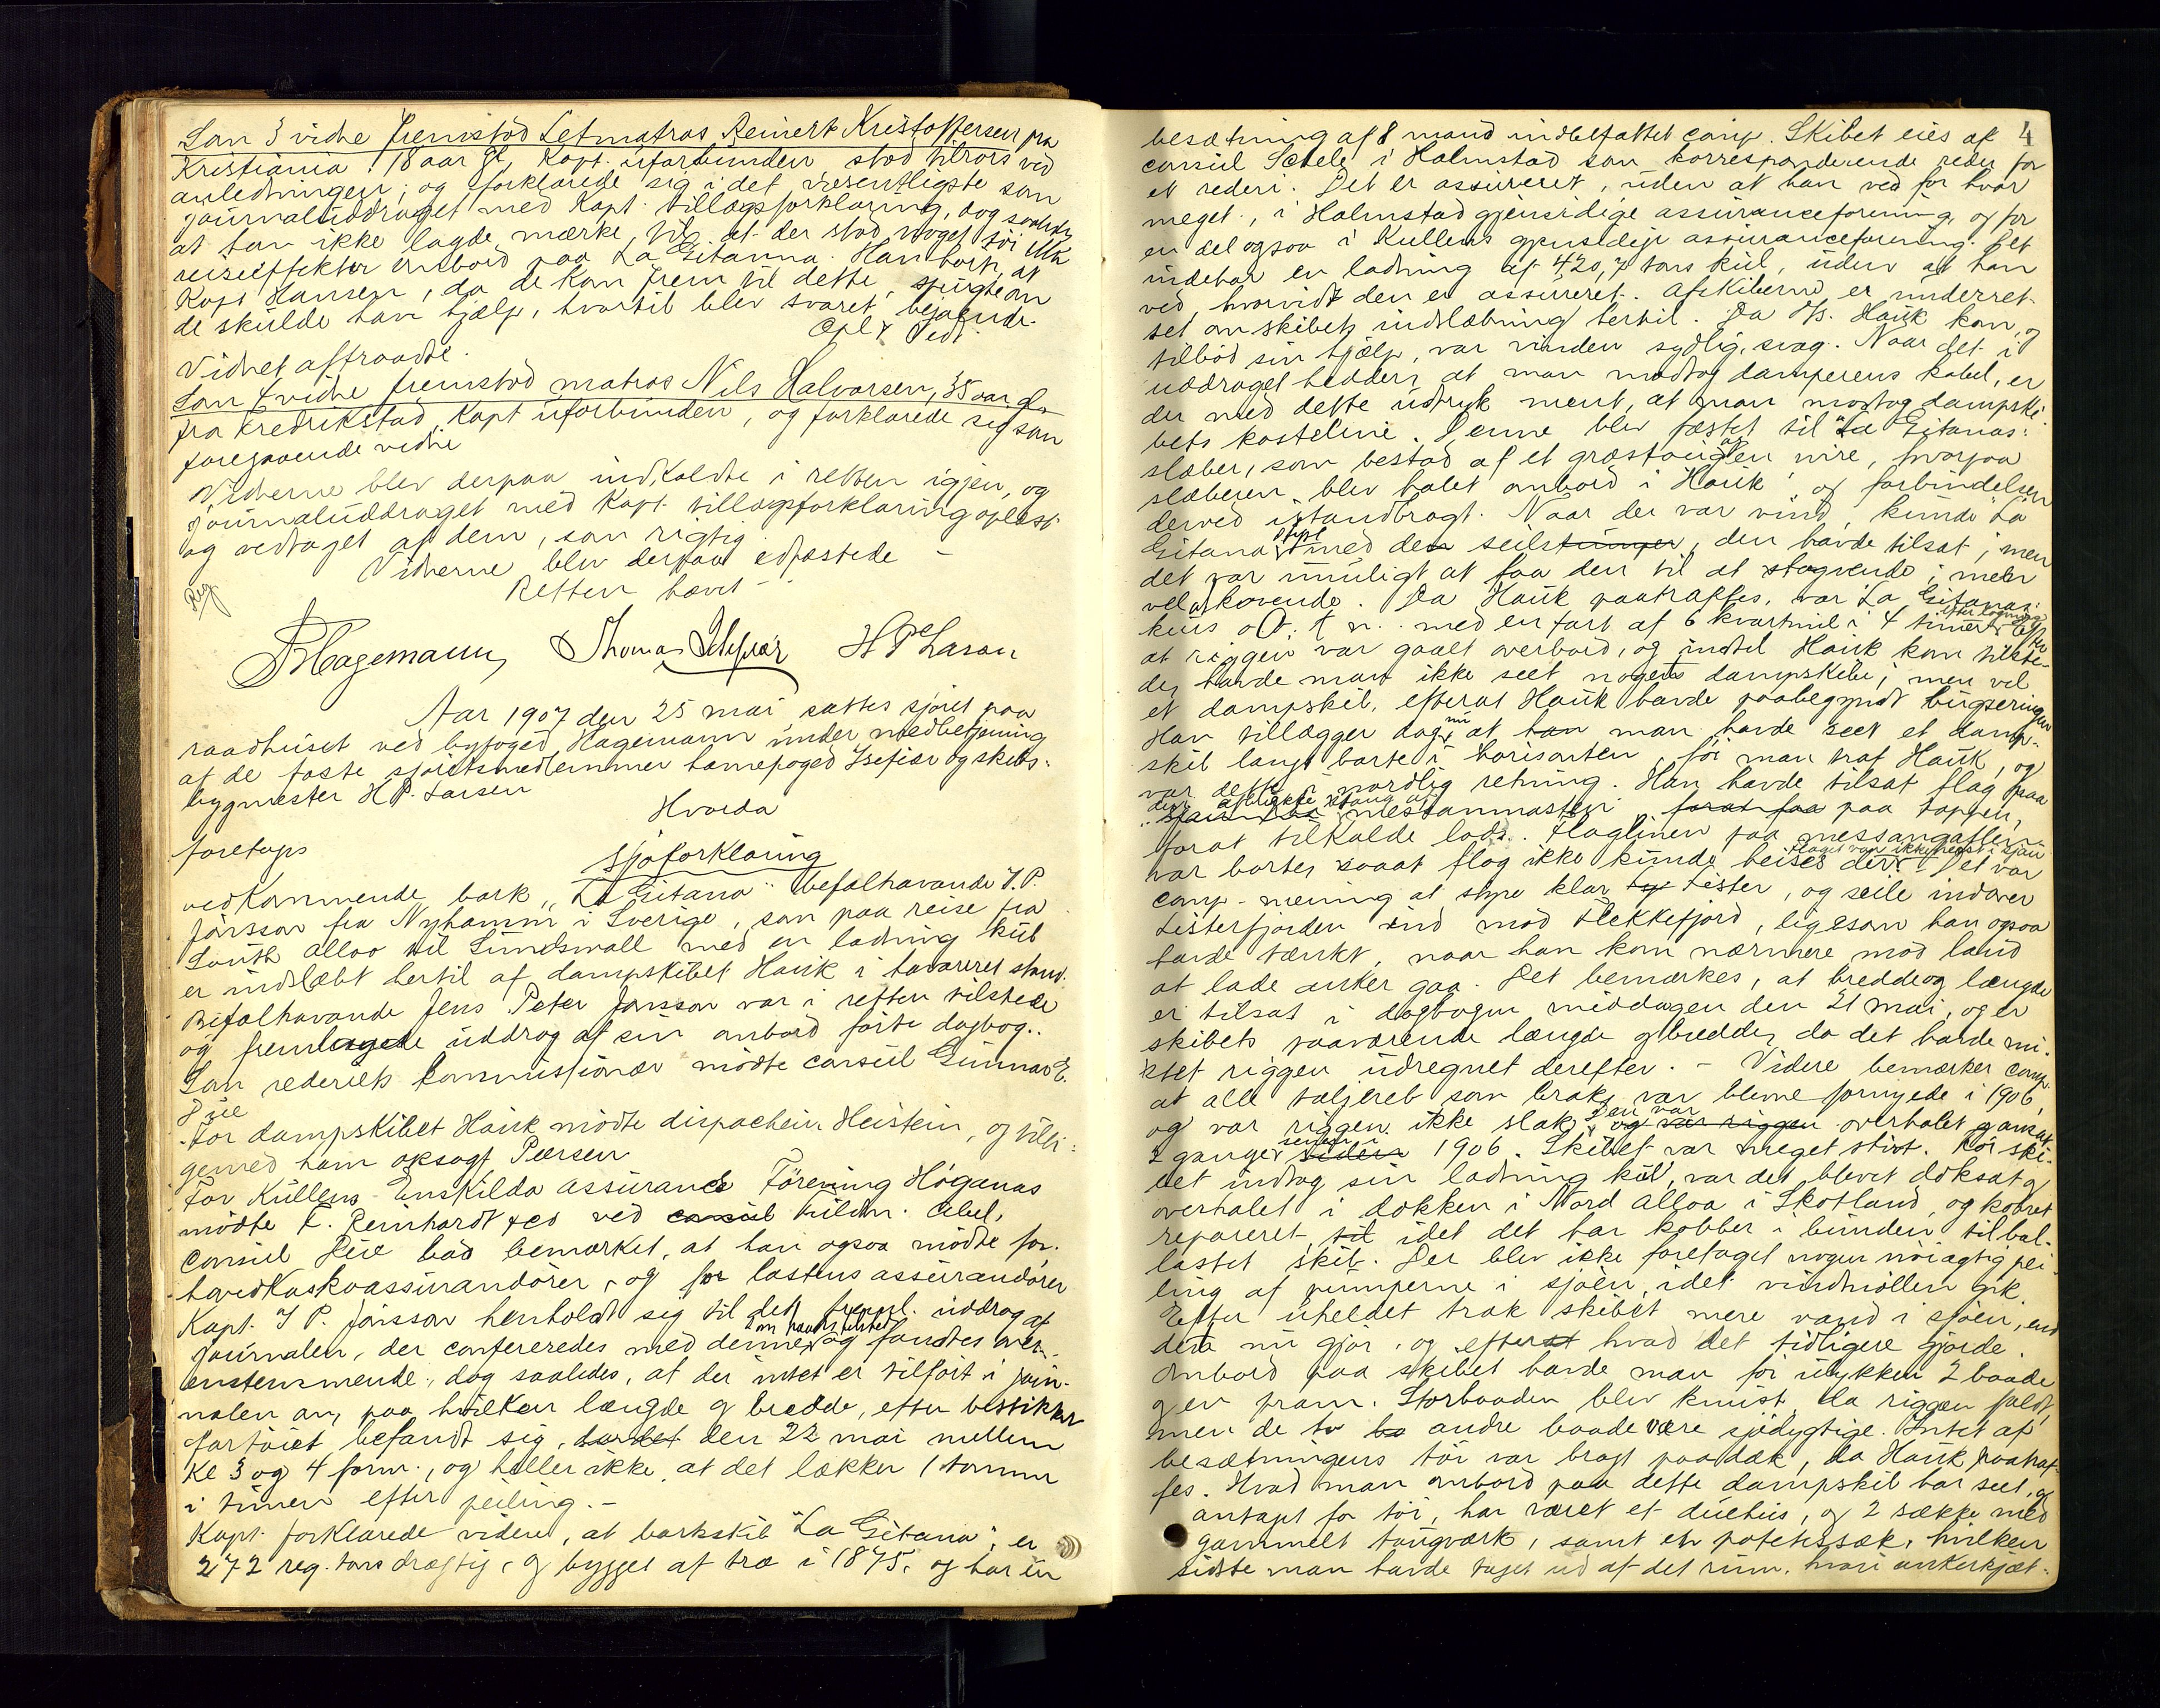 Som 3 vidne fremstod Letmatros Reinert Kristoffersen fra
Kristiania. 18 aar gl, Kapt. uforbunden stod tilrors ved
anledningen, og forklarede sig i det væsentligste som
journaluddraget med Kapt. tillægsforklaring, dog saaledes
at han ikke lagde mærke til at der stod noget töi eller
reiseeffekter ombord paa La Gitanna. Han hørte, at
Kapt Hansen, da de kom frem til dette, spurgte om
de skulde have hjælp, hvortil blev svaret bejaende.
Opl & Vedt.
Vidnet aftraadte.
Som 4 vidne fremstod matros Nils Halvorsen, 35 aar gl.
fra Fredrikstad, Kapt uforbunden, og forklarede sig som
foregaaende vidne
Vidnerne blev derpaa indkaldte i retten igjen, og
journaluddraget med Kapt. tillægsforklaring oplæst
og vedtaget af dem, som rigtig.
Vidnerne blev derpaa edfæstede –
Retten hævet –
Reg
Hagemann, Thomas HPLarsen
Aar 1907 den 25 mai sattes sjöret paa
raadhuset ved byfoged Hagemann under medbetjening
af de faste sjöretsmedlemmer havnefoged Isefiær og skibs-
bygmester H.P. Larsen
Hvorda
foretoges
Sjöforklaring
vedkommende bark „La Gitana" befalhavande J.P.
Jönsson fra Nyhamn i Sverige, som paa reise fra
South Alloa til Sundswall med en ladning kul
er indslæbt hertil af dampskibet Hauk i havareret stand.
Befalhavande Jens Peter Jönsson var i retten tilstede
og fremlagde uddrag af sin ombord förte dagbog..
Som rederiets kommissionær mödte consul Gunnar E.
Püe
For dampskibet Hauk mödte dispachör Heistein, og tilli-
gemed ham oksagf. Peersen
For Kullens Enskilda Assurance Förening Höganäs
mödte F. Reinhardt & co ved consul Vilhm. Abel,
Consul Püe bad bemærket, at han ogsaa mödte for
hovedkaskoassurandörer, og for lastens assurandörer
Kapt. J P. Jönsson henholdt sig til det freml. uddrag af
journalen, der confereredes med denne, som havdes tilstede og fandtes over-
ensstemmende, dog saaledes, at der intet er tilfört i jour-
nalen om, paa hvilken længde og bredde, efter bestikket
fartöiet befandt sig, den 22 mai mellem
Kl 3 og 4 form., og heller ikke, at det lækker 1 tomme
i timen efter peiling.–
Kapt. forklarede videre, at barkskib "La Gitana", er
272 reg. tons drægtig, og bygget af træ i 1875, og har en
4
besætning af 8 mand indbefattet capt. Skibet eies af
consul Schele i Halmstad som korresponderende reder for
et rederi. Det er assureret, uden at han ved for hvor
meget, i Halmstad gjensidige assuranceforening, og for
en del ogsaa i Kullens gjensidige assuranceforening. Det
indehar en ladning af 420,7 tons kul, uden at han
ved, hvorvidt den er assureret. Afskiberne er underret-
tet om skibets indslæbning hertil. Da D/s. Hauk kom, og
tilböd sin hjælp, var vinden sydlig, svag. Naar det i
uddraget hedder, at man modtog damperens kabel, er
der med dette udtryk ment, at man modtog dampski-
bets kasteline. Denne blev fæstet til "La Gitanas"
slæber, som bestod af et græstaug og en wire, hvorpaa
slæberen blev halet ombord i Hauk og forbindelsen
derved istandbragt. Naar der var vind, kunde La
Gitana styre med de seil, den havde tilsat, men
det var umuligt at faa den til at stagvende, men
vel at kovende. Da Hauk paatraffes, var La Gitanas
kurs o O. t. n. med en fart af 6 kvartmil i 4 timer, efter logning. Efter
at riggen var gaaet overbord, og indtil Hauk kom tilste-
de, havde man ikke seet nogen dampskibe, men vel
et dampskib, efterat Hauk havde paabegyndt bugseringen
Han tillægger dog nu, at man havde seet et damp-
skib langt borte i horisonten, för man traf Hauk, og
var dette i nordlig retning. Han havde tilsat flag paa
messanmasten paa toppen,
forat tilkalde lods. Flaglinen paa messangaffelen
var borte, saaat flag ikke kunde heises der. Flaget var ikke heist i sjau. Det var
capt. mening at styre klar Lister, og seile indover
Listerfjorden ind mod Flekkefjord, ligesom han ogsaa
havde tænkt, naar han kom nærmere mod land
at lade anker gaa. Det bemærkes, at bredde og længde
er tilsat i dagbogen middagen den 21 mai, og er
skibets paaværende længde og bredde, da det havde mi-
stet riggen udregnet derefter. – Videre bemærker capt.
at alle taljereb som brak, var blevne fornyede i 1906,
og var riggen ikke slak. Den var overhalet ganske
2 ganger senest i 1906. Skibet var meget stivt. För ski-
bet indtog sin ladning kul, var det blevet doksat og
overhalet i dokken i Nord Alloa i Skotland, og kobret
repareret idet det har kobber i bunden til bal-
lastet skib. Der blev ikke foretaget nogen nöiagtig pei-
ling af pumperne i sjöen, idet vindmöllen gik.
Efter uheldet trak skibet mere vand i sjöen, end
det nu gjör, og efter hvad det tidligere gjorde.
Ombord paa skibet havde man för ulykken 2 baade
og en pram. Storbaaden blev knust, da riggen faldt,
men de to andre baade være sjödygtige. Intet af
besætningens töi var bragt paa dæk, da Hauk paatraf-
fes. Hvad man ombord paa dette dampskib har seet, og
antaget for töi, har været et duehus, og 2 sække med
gammelt taugværk, samt en potetessæk, hvilken
sidste man havde taget ud af det rum, hvori ankerkjæt-